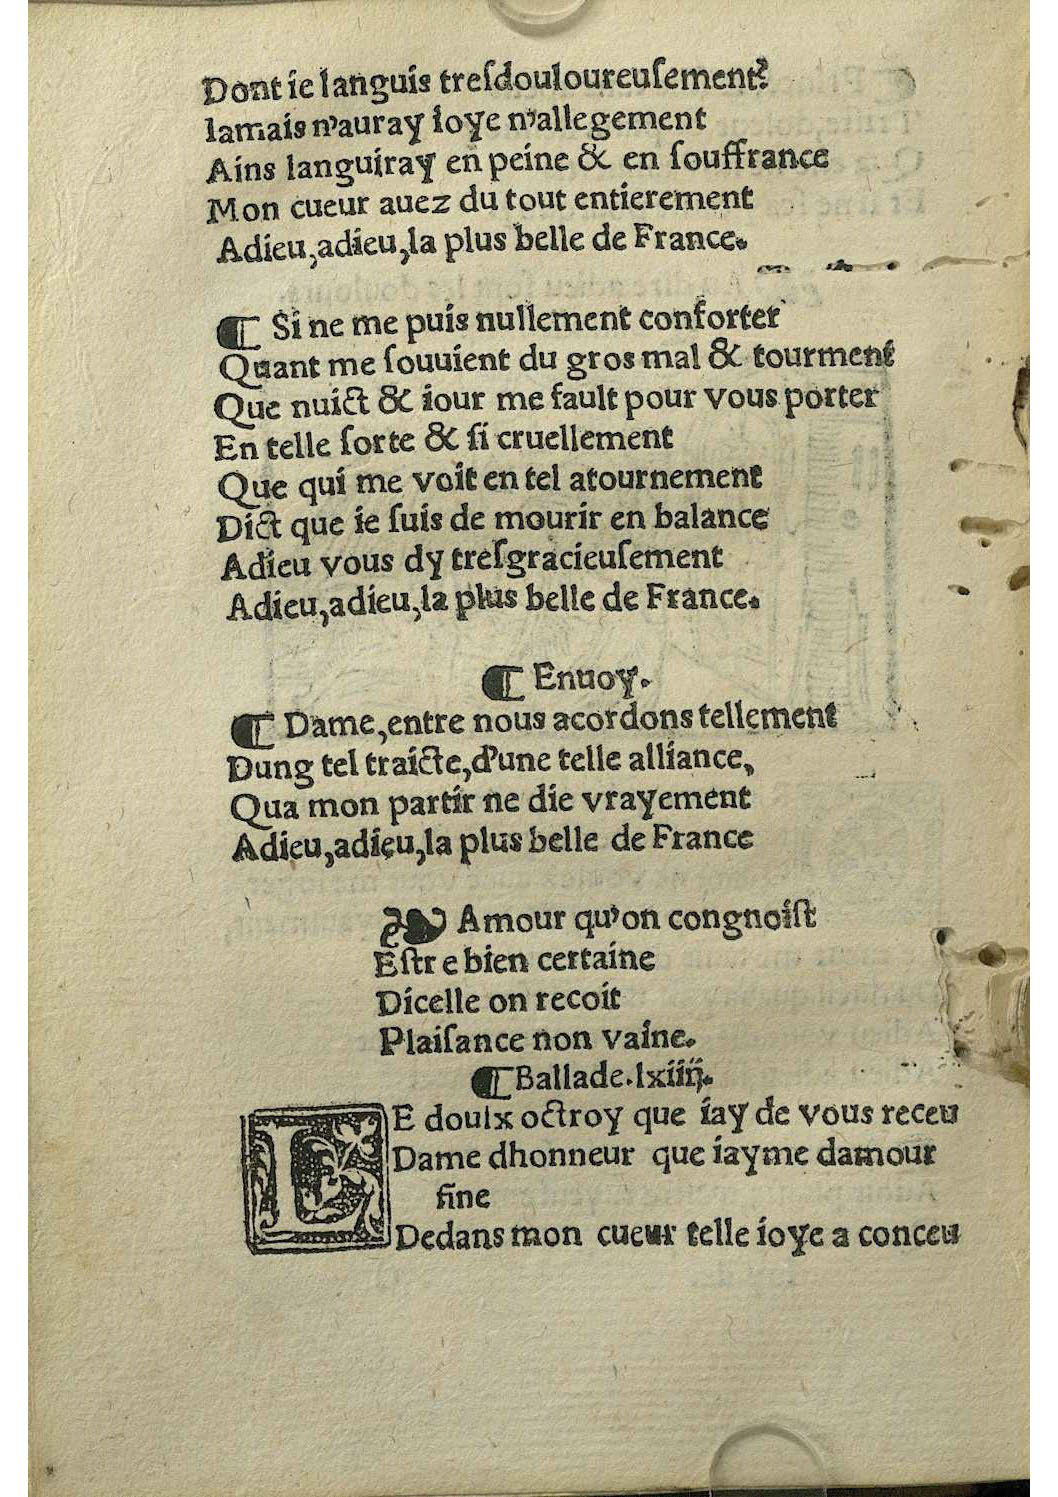 Dont ie languis treſdouloureuſement?
Iamais n'auray ioye n'allegement
Ains languiray en peine & en ſouffrance
Mon cueur auez du tout entierement
Adieu, adieu, la plus belle de France.
¶ Si ne me puis nullement conforter
Quant me ſouuient du gros mal & tourment
Que nuict & iour me fault pour vous porter
En telle ſorte & ſi cruellement
Que qui me voit en tel atournement
Dict que ie ſuis de mourir en balance
Adieu vous dy treſgracieuſement
Adieu, adieu, la plus belle de France.
¶ Enuoy.
¶ Dame, entre nous acordons tellement
Dung tel traicte, d'une telle alliance,
Qua mon partir ne die vrayement
Adieu, adieu, la plus belle de France
❧ Amour qu'on congnoiſt
Eſtre bien certaine
Dicelle on recoit
Plaiſance non vaine.
¶ Ballade. lxiiij.
LE doulx octroy que iay de vous receu
Dame dhonneur que iayme damour
fine
Dedans mon cueur telle ioye a conceu